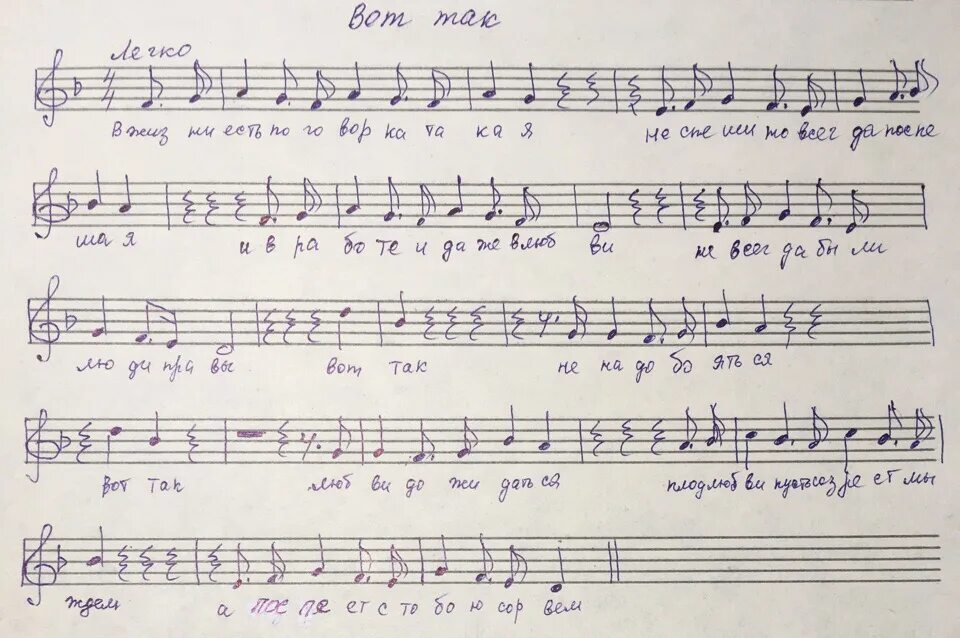 Вот так
Легко
В жиз ни есть по го вор ка та ка я не спе ши то всег да поспе
ша я и в ра бо те и да же в люб ви не всег да бы ли
лю ди пра вы вот так не на до бо ять ся
вот так люб ви до жи дать ся плод люб ви пусть соз ре ет мы
ждем а пос пе ет с то бо ю сор вем